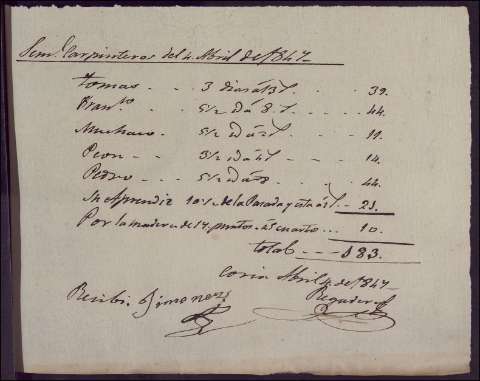 Sem.ª Carpinteros del 4. Abril de 1847
Tomas 3 dias á 13 39.
Fran.co 5 1/2 id á 8. 44.
Muchaco 5 1/2 id á 2 11.
Peon 3 1/2 id á 4 14.
Pedro 5 1/2 id á 8 44.
Su Aprendiz 10 1/2 de la Pasada y esta á 2 21.
Por la madera de 17. puntos á cuarto 10.
total 183.
Coria Abril 4 de 1847
Recibi. Jimenez Regadera